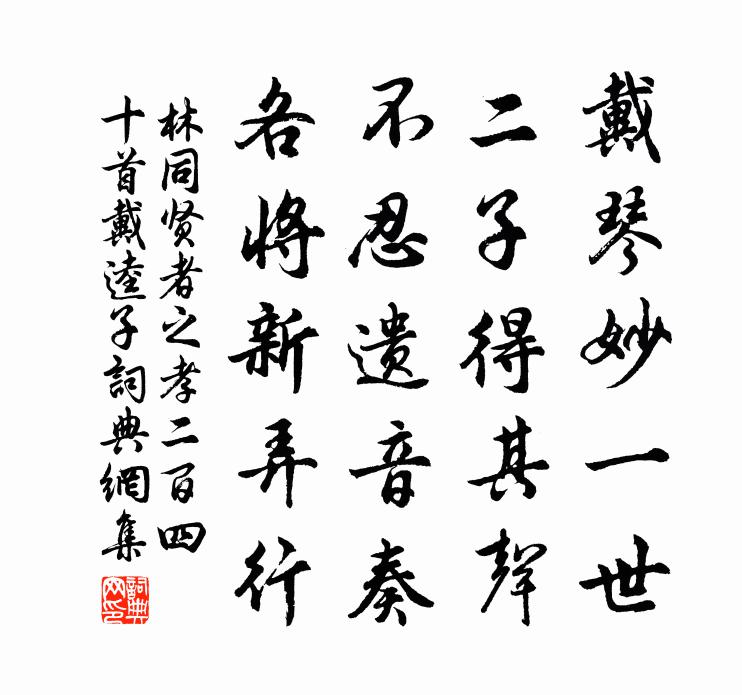 戴琴妙一世
二子得其聲
不忍遺音奏
各將新弄行
林同贤者之孝二百四
十首戴逵子詞典網集
詞典網印